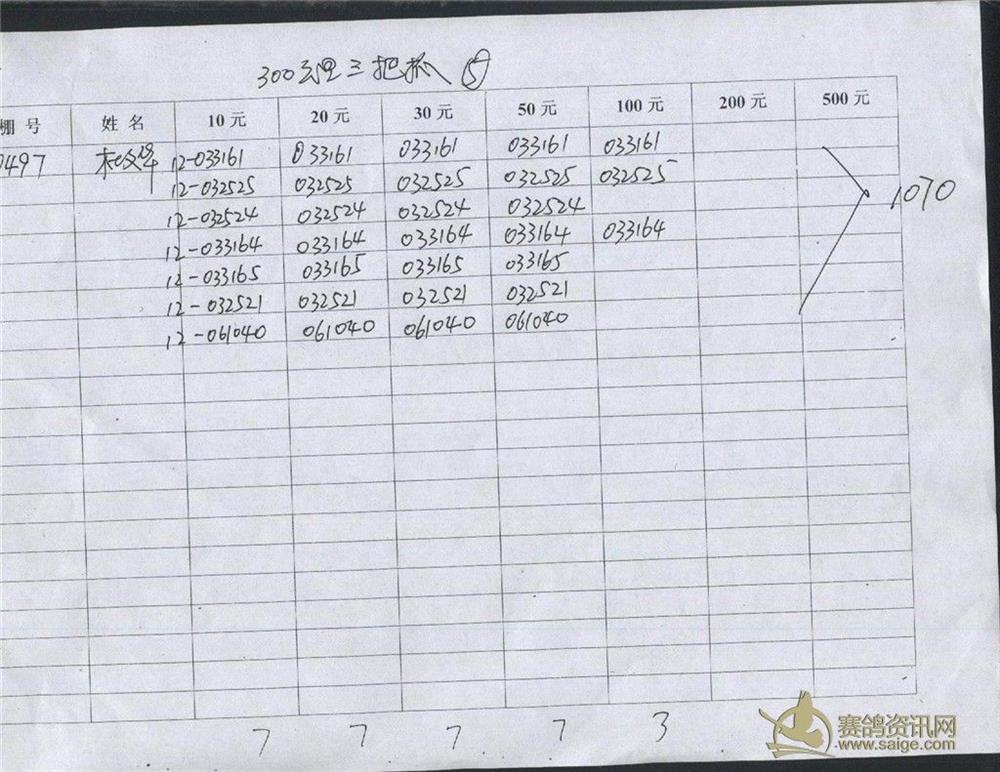 300公里三把抓 ⑤
棚号 姓名 10元 20元 30元 50元 100元 200元 500元
0497 12-033161 033161 033161 033161 033161
12-032525 032525 032525 032525 032525
12-032524 032524 032524 032524
12-033164 033164 033164 033164 033164
12-033165 033165 033165 033165
12-032521 032521 032521 032521
12-061040 061040 061040 061040
1070
7 7 7. 7 3
赛鸽资讯网
www.saige.com